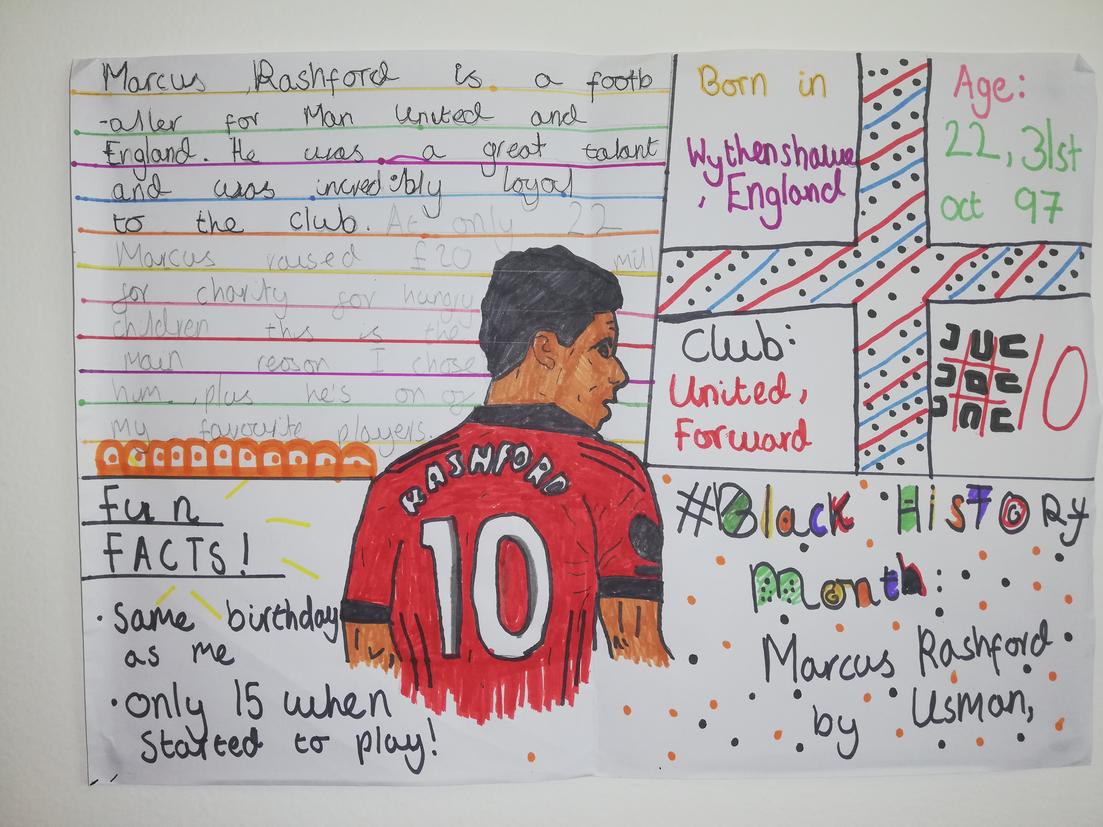 Marcus Rashford is a footb
-aller for Man United and
England. He was a great talant
and was incredibly loyal
to the club. At only 22
Marcus raised £20 mill
for charity for hungry
children this is the
main reason I chose
him, plus he's on of
my favourite players.
Born in
Wythenshawe
, England
Age:
22, 31st
oct 97
Club:
United,
Forward
10
RASHFORD
10
Fun
FACTS!
• Same birthday
as me
• only 15 when
started to play!
#Black HisTORy
Month:
Marcus Rashford
by Usman,